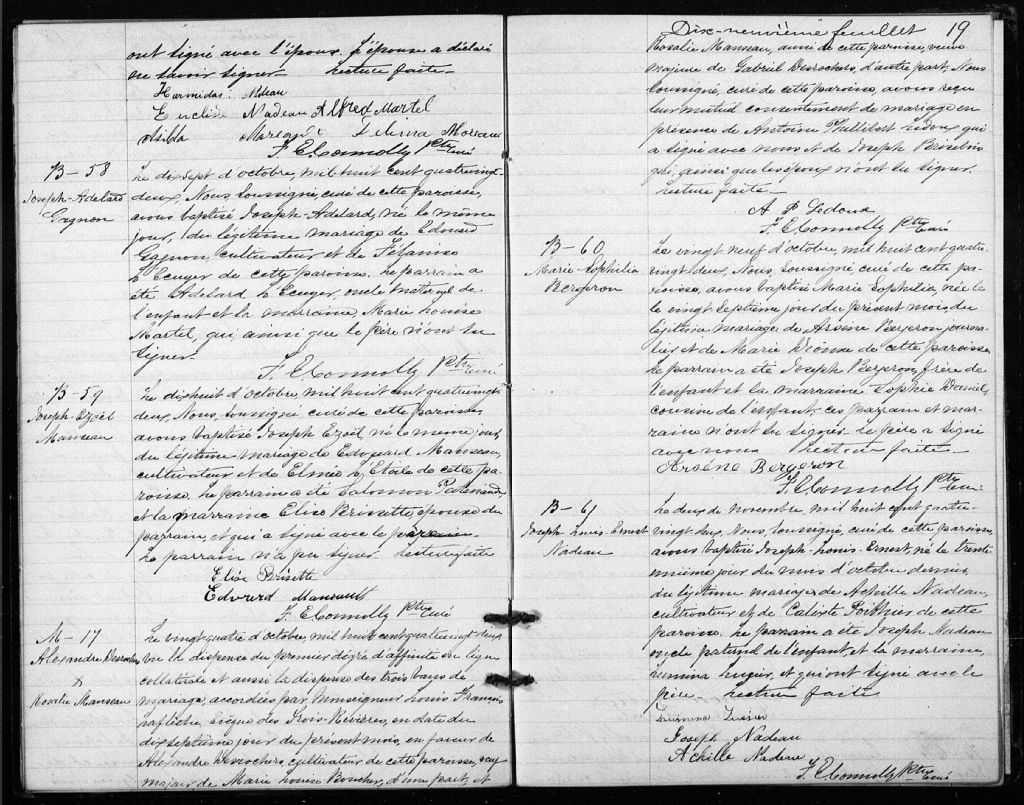 ont signé avec l'époux. L'épouse a déclaré
ne savoir signer. Lecture faite.
Harmidas Nadeau
Euclide Nadeau Alfred Martel
Asilda Delvina Moreau
F. E. Connolly Ptre Curé
B-58
Joseph-Adelard
Gagnon
Le dix sept d'octobre, mil huit cent quatrevingt-
deux, Nous, soussigné, curé de cette paroisse,
avons baptisé Joseph-Adelard, né le même
jour, du légitime mariage de Edouard
Gagnon, cultivateur et de Mélanise
L'Ecuyer de cette paroisse. Le parrain a
été Adelard L'Ecuyer, oncle maternel de
l'enfant et la marraine, Marie Louise
Martel, qui, ainsi que le père n'ont su
signer.
F. E. Connolly Ptre Curé
B-59
Joseph-Ezoël
Manseau
Le dixhuit d'octobre, mil huit cent quatrevingt-
deux, Nous, soussigné curé de cette paroisse,
avons baptisé Joseph Ezoël, né le même jour,
du légitime mariage de Edouard Manseau,
cultivateur et de Elmie L'Etoile de cette pa-
roisse. Le parrain a été Salomon
et la marraine Elise Brissette, épouse du
parrain, et qui a signé avec le père.
Le parrain n'a pu signer. Lecture faite
Elise Brisette
Edward Manseault
F. E. Connolly Ptre Curé
M-17
Alexandre Desrochers
x
Rosalie Manseau
Le vingt quatre d'octobre, mil huit cent quatrevingt deux
vu la dispense du premier dégré d'affinité en ligne
collatérale et aussi la dispense des trois bans de
mariage, accordées par Monseigneur Louis François
Laflèche, évêque des Trois-Rivières, en date du
dix septième jour du présent mois, en faveur de
Alexandre Desrochers, cultivateur de cette paroisse, veuf
majeur de Marie Louise Boucher, d'une part, et
Dix-neuvième feuillet 19
Rosalie Manseau, aussi de cette paroisse, veuve
majeure de Gabriel Desrochers, d'autre part, Nous
soussigné, curé de cette paroisse, avons reçu
leur mutuel consentement de mariage en
présence de Antoine Phillibert Ledoux qui
a signé avec nous et de Joseph Brisebois
qui, ainsi que les époux n'ont su signer.
Lecture faite.
A P Ledoux
F. E. Connolly Ptre Curé
B-60
Marie-Sophilia
Bergeron
Le vingt neuf d'octobre, mil huit cent quatre-
vingt deux, Nous, soussigné curé de cette pa-
roisse, avons baptisé Marie Sophilia, née le
le vingt septième jour du présent mois, du
légitime mariage de Arsène Bergeron, journa-
lier et de Marie de cette paroisse.
Le parrain a été Joseph Bergeron, frère de
l'enfant et la marraine Sophie Daniel,
cousine de l'enfant; ces parrain et mar-
raine n'ont su signer. Le père a signé
avec nous. Lecture faite.
Arsène Bergeron
F. E. Connolly Ptre Curé
B-61
Joseph-Louis-Ernest
Nadeau
Le deux de novembre mil huit cent quatre-
vingt deux, Nous, soussigné, curé de cette paroisse,
avons baptisé Joseph-Louis-Ernest, né le trente
unième jour du mois d'octobre dernier,
du légitime mariage de Achille Nadeau,
cultivateur et de Calixte de cette
paroisse. Le parrain a été Joseph Nadeau
oncle paternel de l'enfant et la marraine,
et qui ont signé avec le
père. Lecture faite
Joseph Nadeau
Achille Nadeau
F. E. Connolly Ptre Curé